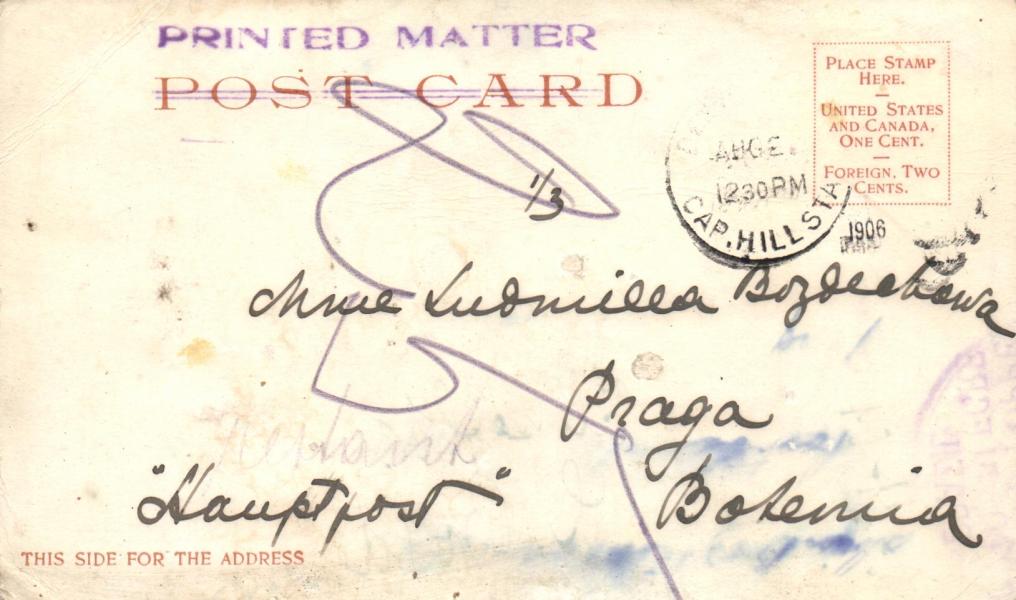 PRINTED MATTER
POST CARD
PLACE STAMP
HERE.
UNITED STATES
AND CANADA,
ONE CENT.
FOREIGN, TWO
CENTS.
1/3
1230 PM
CAP. HILL STA
1906
Mme Ludmilla Bozdechowa
Praga
"Hauptpost"
Bohemia
THIS SIDE FOR THE ADDRESS